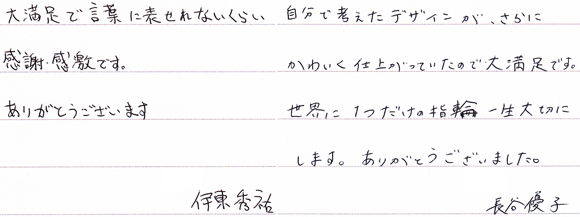 大満足で言葉に表せれないくらい
感謝・感激です。
ありがとうございます
伊東秀祐
自分で考えたデザインが、さらに
かわいく仕上がっていたので大満足です。
世界に1つだけの指輪一生大切に
します。ありがとうございました。
長谷優子